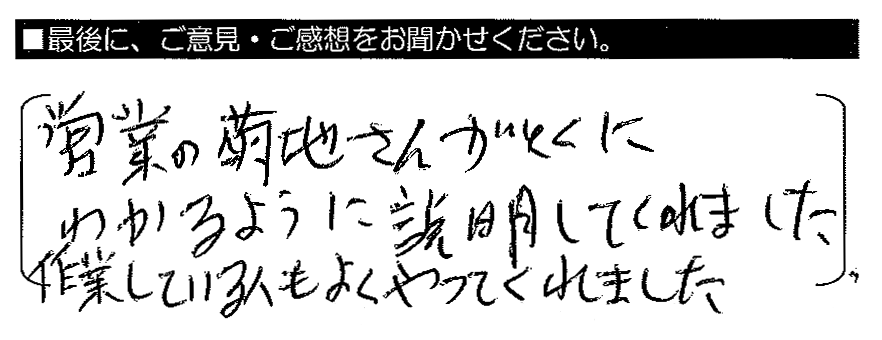 ■最後に、ご意見・ご感想をお聞かせください。
営業の菊地さんがとくに
わかるように説明してくれました
作業している人もよくやってくれました